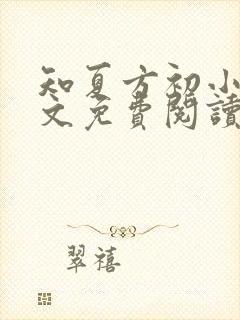 知夏方初小
文免費閱讀
翠禧